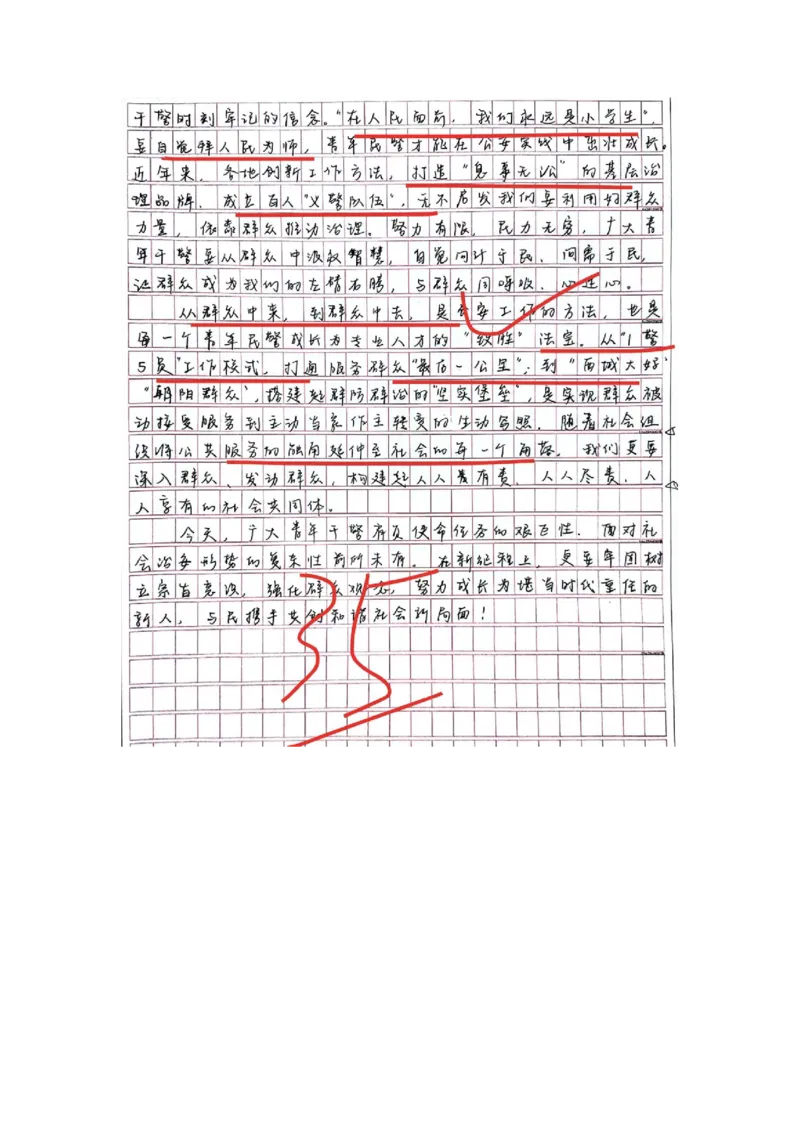 干警时刻牢记的信念。“在人民面前，我们永远是小学生”，
要自觉拜人民为师，青年民警才能在公安实战中茁壮成长。
近年来，各地创新工作方法，打造“息事无讼”的基层治
理品牌、成立百人“义警队伍”，无不启发我们要利用好群众
力量，依靠群众推动治理。警力有限，民力无穷，广大青
年干警要从群众中汲取智慧，自觉问计于民、问需于民，
让群众成为我们的左臂右膀，与群众同呼吸、心连心。
从群众中来，到群众中去，是公安工作的方法，也是
每一个青年民警成长为专业人才的“致胜”法宝。从“1警
5员”工作模式，打通服务群众“最后一公里”；到“西城大妈”
“朝阳群众”，搭建起群防群治的“坚实堡垒”，是实现群众被
动接受服务到主动当家作主转变的生动写照。随着社会组
织将公共服务的触角延伸至社会的每一个角落，我们更要
深入群众、发动群众，构建起人人有责、人人尽责、人
人享有的社会共同体。
今天，广大青年干警肩负使命任务的艰巨性、面对社
会治安形势的复杂性前所未有。在新征程上，更要牢固树
立宗旨意识，强化群众观念，努力成长为堪当时代重任的
新人，与民携手共创和谐社会新局面！
35